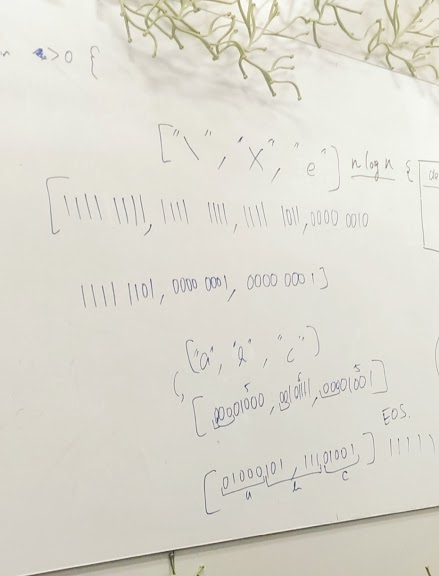 >0 {
["\", "X", "e"] n log n {
[1111 1111, 1111 1111, 1111 1011, 0000 0010
1111 1101, 0000 0001, 0000 0001]
["a", "b", "c"]
5 5 5
[00001000, 0010111, 00001001] EOS.
[01000101, 11101001] 11111
a b c